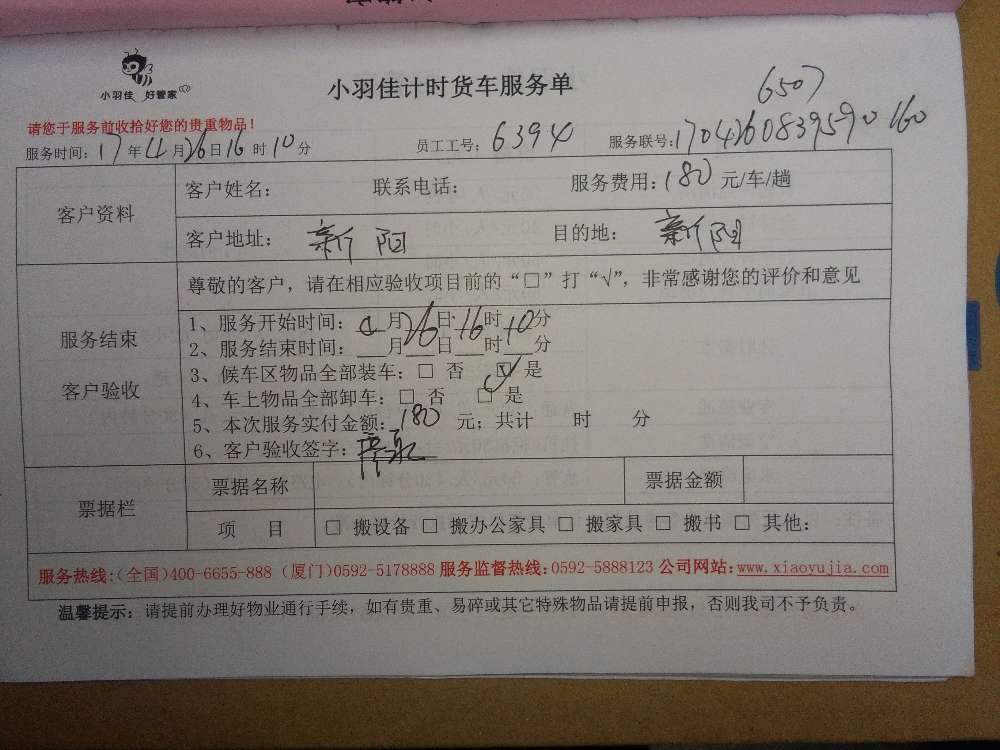 小羽佳 好管家
小羽佳计时货车服务单
6507
请您于服务前收拾好您的贵重物品！
服务时间：17年4月26日16时10分 员工工号：6394 服务联号：170426083959590 160
客户资料
客户姓名： 联系电话： 服务费用：180元/车/趟
客户地址：新阳 目的地：新阳
服务结束
客户验收
尊敬的客户，请在相应验收项目前的“□”打“√”，非常感谢您的评价和意见
1、服务开始时间：4月26日16时10分
2、服务结束时间：___月___日___时___分
3、候车区物品全部装车：□ 否 ☑ 是
4、车上物品全部卸车：□ 否 □ 是
5、本次服务实付金额：180 元；共计 时 分
6、客户验收签字：
票据栏
票据名称 票据金额
项 目 □ 搬设备 □ 搬办公家具 □ 搬家具 □ 搬书 □ 其他：
服务热线：（全国）400-6655-888（厦门）0592-5178888 服务监督热线：0592-5888123 公司网站：www.xiaoyujia.com
温馨提示：请提前办理好物业通行手续，如有贵重、易碎或其它特殊物品请提前申报，否则我司不予负责。